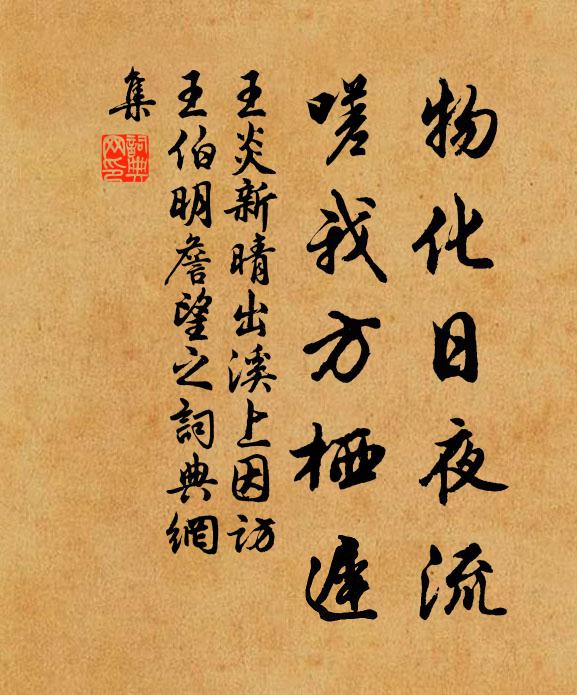 物化日夜流
嗟我方栖遲
王炎新晴出溪上因訪
王伯明詹望之詞典網
集
詞典
网印